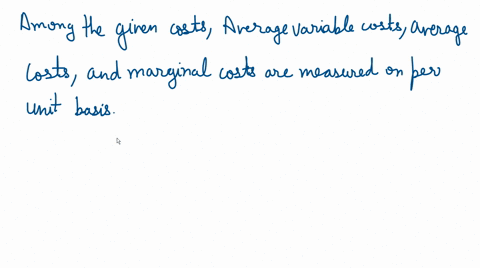 Among the given costs, Average variable costs, average
costs, and marginal costs are measured on per
unit basis.